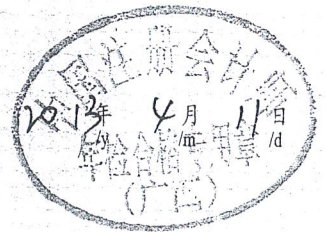 中国注册会计师
2013年 4月 11日
/y /m /d
年检合格专用章
(广西)